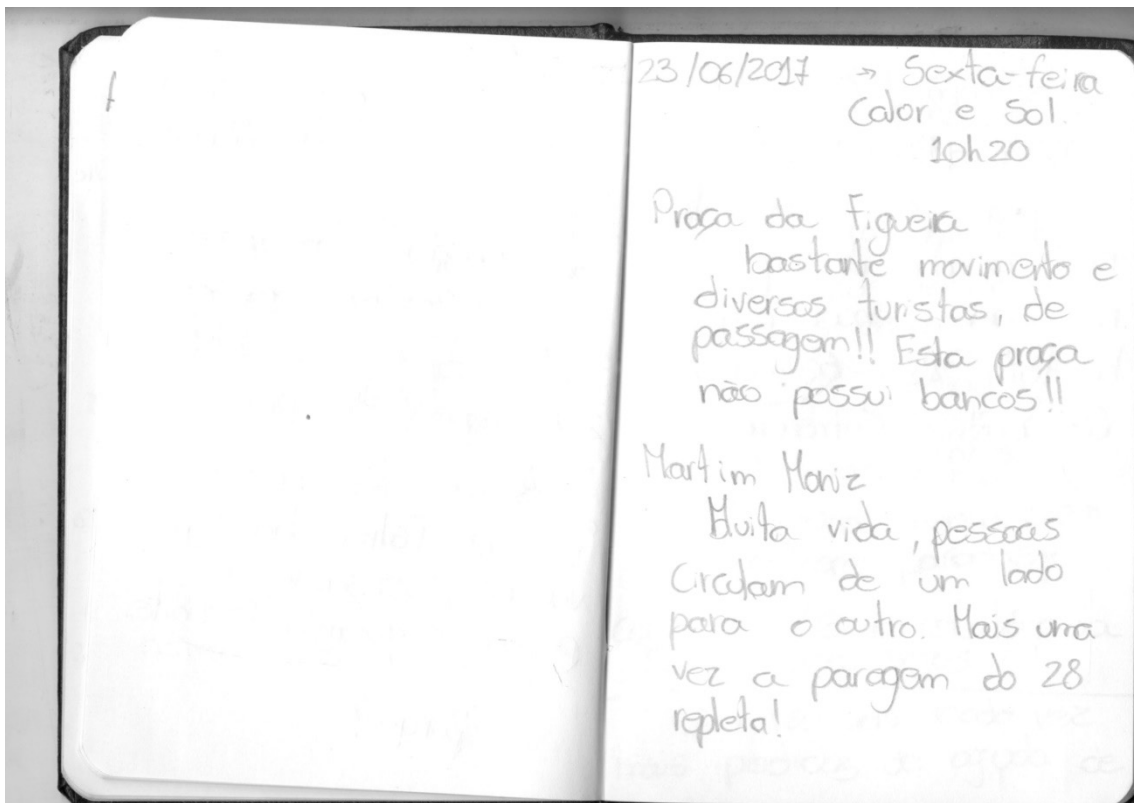 23/06/2017 → Sexta-feira
Calor e Sol.
10h20
Praça da Figueira
bastante movimento e
diversos turistas, de
passagem!! Esta praça
não possui bancos!!
Martim Moniz
Muita vida, pessoas
circulam de um lado
para o outro. Mais uma
vez a paragem do 28
repleta!